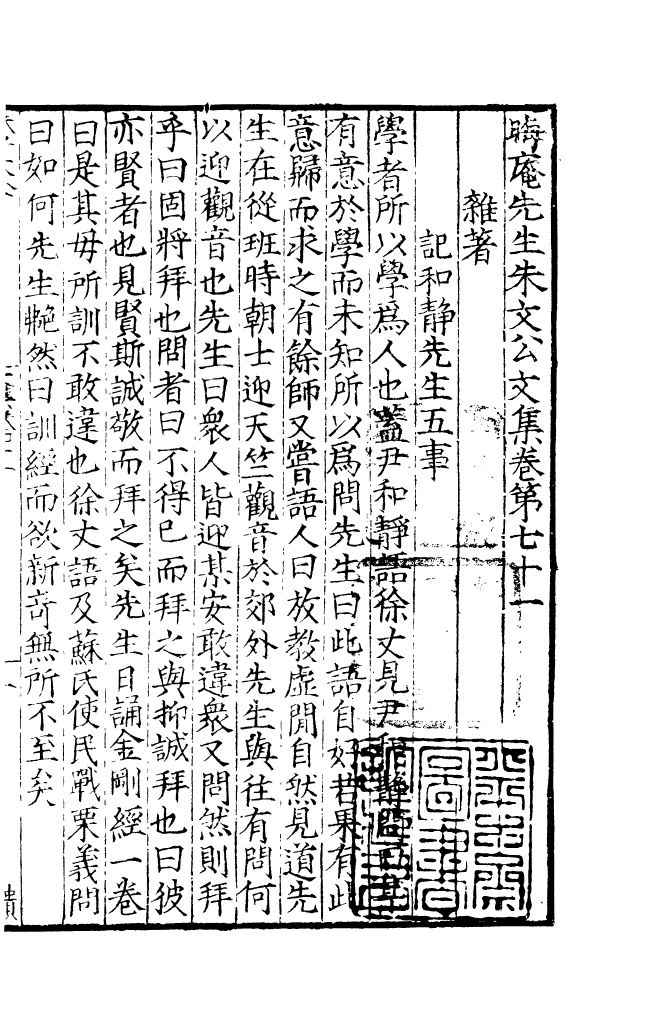 晦庵先生朱文公文集卷第七十一
雜著
記和靜先生五事
學者所以學爲人也蓋尹和靜語徐丈見尹和靜問曰某
有意於學而未知所以爲問先生曰此語自好若果有此
意歸而求之有餘師又嘗語人曰放教虛閒自然見道先
生在從班時朝士迎天竺觀音於郊外先生與往有問何
以迎觀音也先生曰衆人皆迎某安敢違衆又問然則拜
乎曰固將拜也問者曰不得已而拜之與抑誠拜也曰彼
亦賢者也見賢斯誠敬而拜之矣先生日誦金剛經一卷
曰是其毋所訓不敢違也徐丈語及蘇氏使民戰栗義問
曰如何先生艴然曰訓經而欲新奇無所不至矣